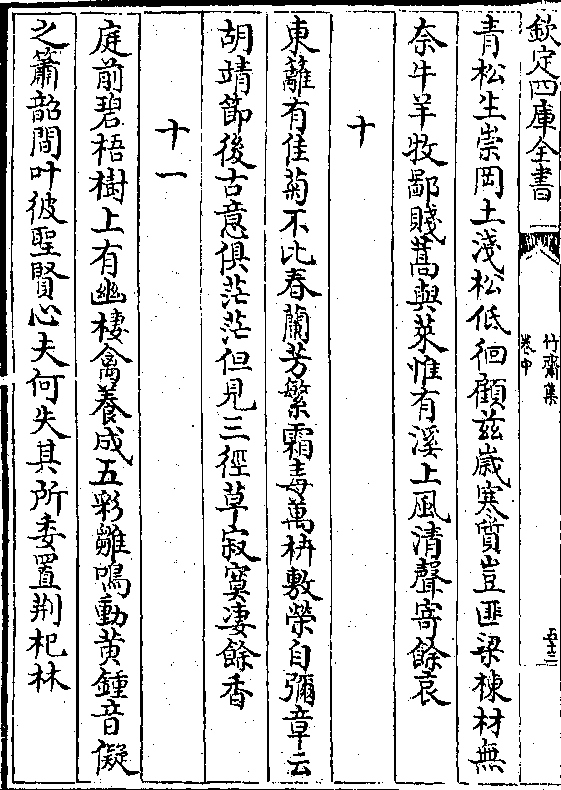 欽定四庫全書
竹齋集
卷中
五十三
青松生崇岡土淺松低徊顧兹嵗寒質豈匪梁棟材無
奈牛羊牧鄙賤蒿與萊惟有溪上風清聲寄餘哀
十
東籬有佳菊不比春蘭芳繁霜毒萬枿敷榮自彌章云
胡靖節後古意俱茫茫但見三徑草寂寞淒餘香
十一
庭前碧梧樹上有幽棲禽養成五彩雛鳴動黄鍾音儗
之簫韶間叶彼聖賢心夫何失其所委置荆杞林